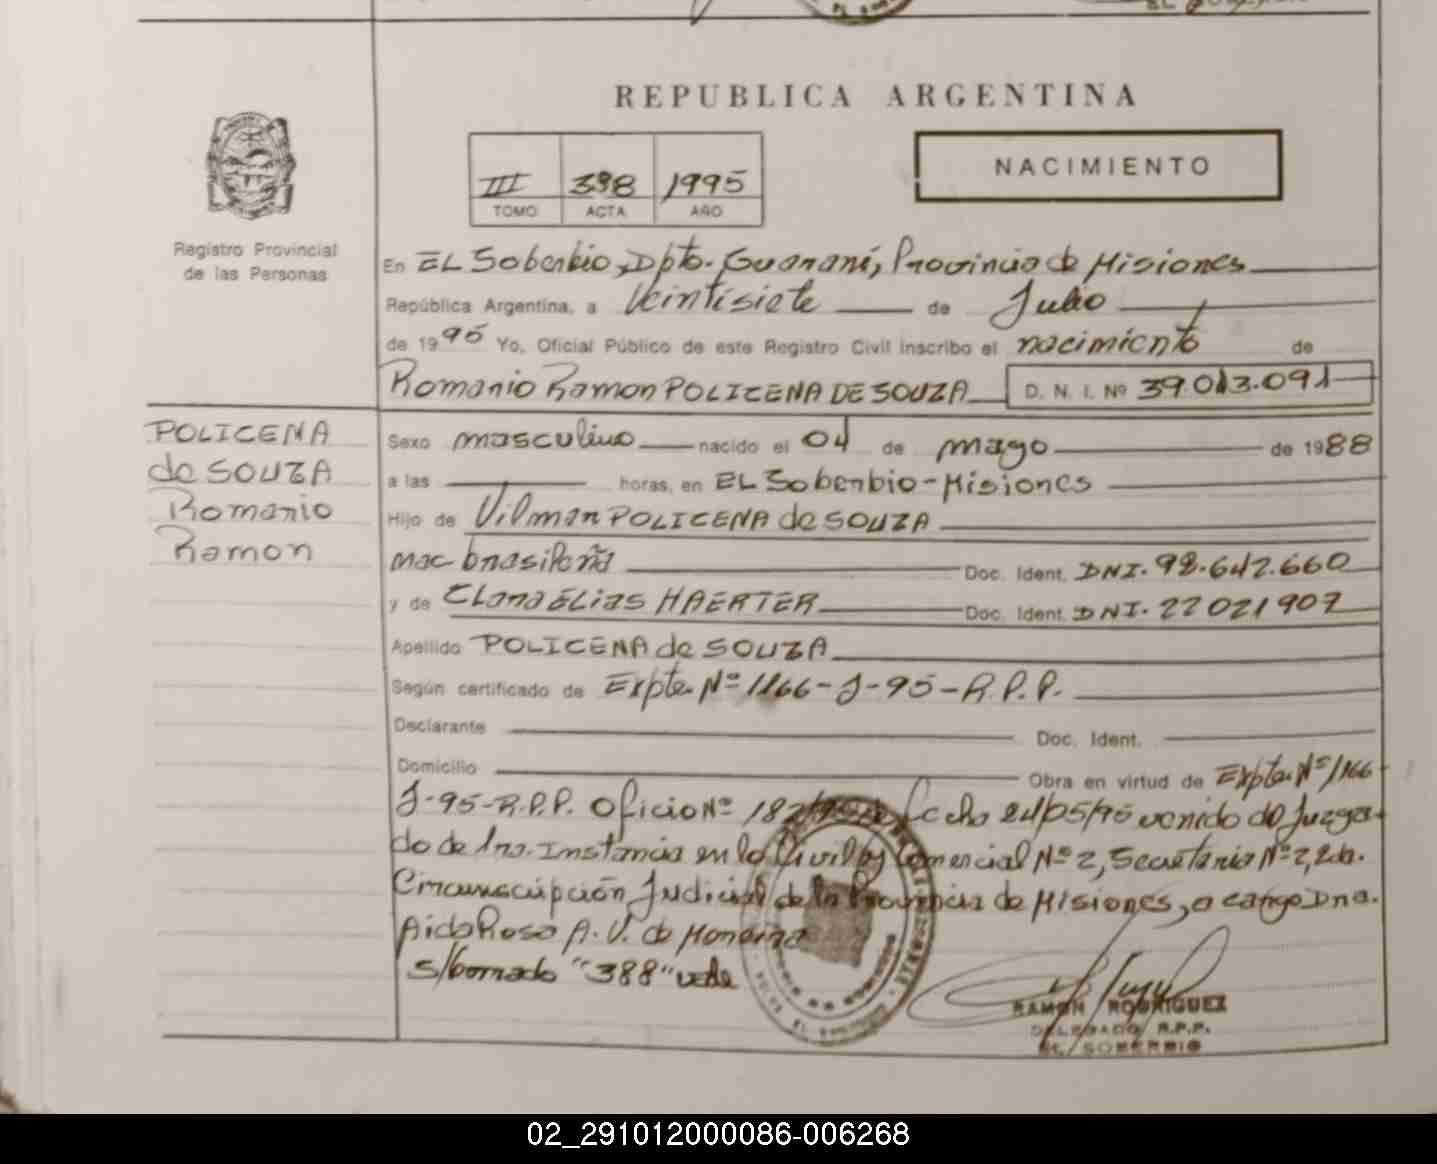 REPUBLICA ARGENTINA
NACIMIENTO
III 398 1995
TOMO ACTA AÑO
Registro Provincial
de las Personas
En EL Soberbio, Dpto. Guaraní, Provincia de Misiones
República Argentina, a Veintisiete de Julio
de 1995 Yo, Oficial Público de este Registro Civil inscribo el nacimiento de
Romario Ramon POLICENA DE SOUZA D. N. I. Nº 39.013.091
POLICENA
de SOUZA
Romario
Ramon
Sexo masculino nacido el 04 de mayo de 1988
a las horas, en EL Soberbio - Misiones
Hijo de Vilman POLICENA de SOUZA
nac brasileña Doc. Ident. DNI. 98.642.660
y de Clara ELIAS HAERTER Doc. Ident. DNI. 22021907
Apellido POLICENA de SOUZA
Según certificado de Expte. Nº 1166-J-95-R.P.P.
Declarante Doc. Ident.
Domicilio Obra en virtud de Expte. Nº 1166
J-95-R.P.P. Oficio Nº fecha 24/05/95 venido del Juzga-
do de 1ra. Instancia en lo Civil y Comercial Nº 2, Secretaria Nº 2, 2da.
Circunscripción Judicial de la Provincia de Misiones, a cargo Dra.
Aida Rosa A. V. de
s/borrado "388" vale
RAMON RODRIGUEZ
DELEGADO R.P.P.
EL SOBERBIO
02_291012000086-006268